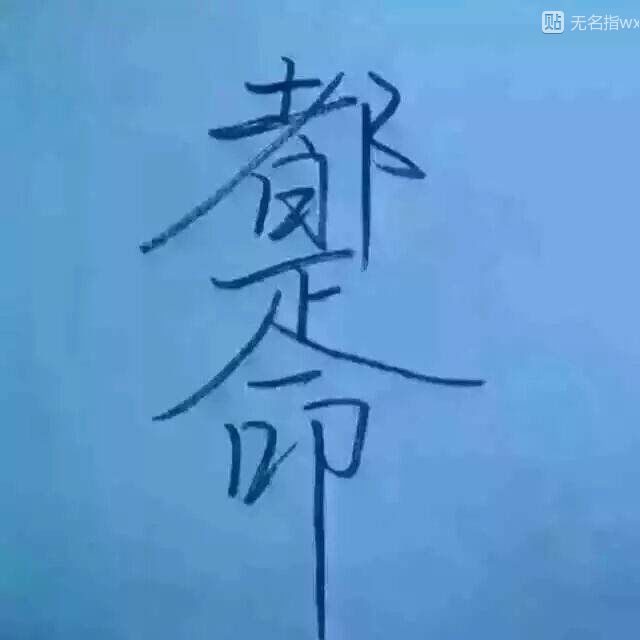 贴 无名指wx
都
是
命